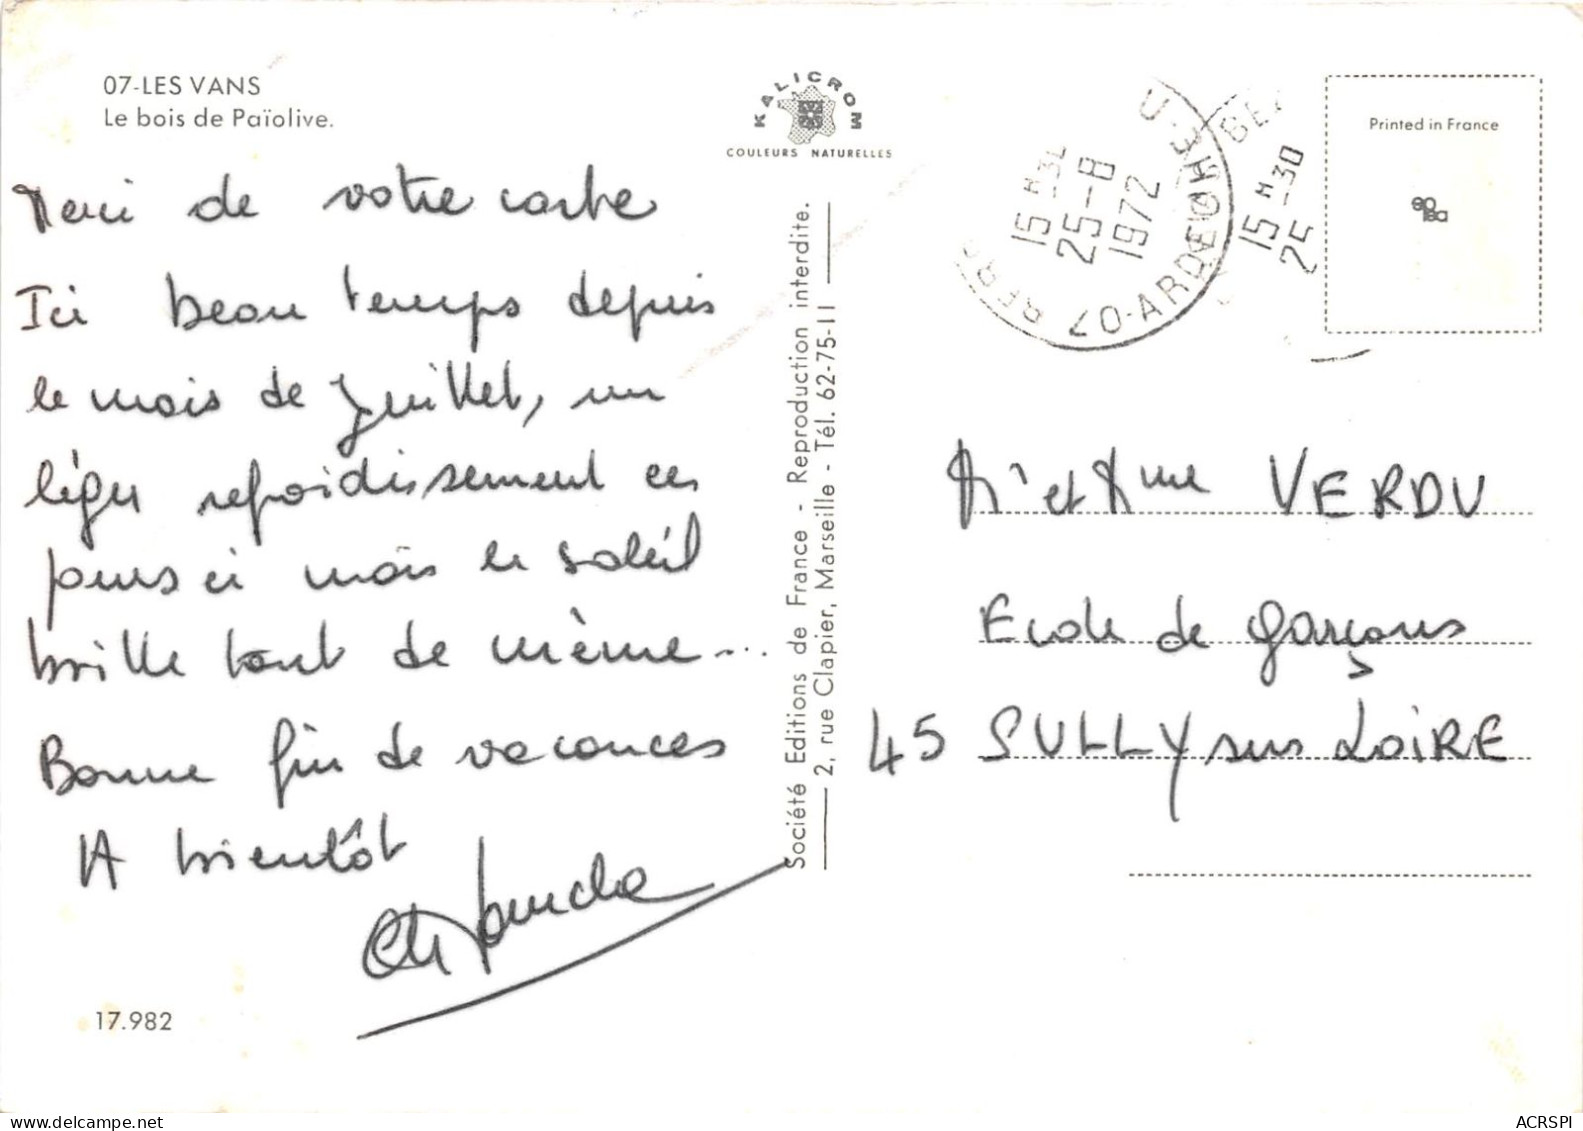 07-LES VANS
Le bois de Païolive.
KALICROM
COULEURS NATURELLES
Merci de votre carte
Ici beau temps depuis
le mois de Juillet, un
léger refroidissement ces
jours ci mais le soleil
brille tout de même...
Bonne fin de vacances
A bientôt
17.982
Société Editions de France - Reproduction interdite.
2, rue Clapier, Marseille - Tél. 62-75-11
15 H 30
25-8
1972
07-ARDECHE
15 H 30
25
Printed in France
M' et Mme VERDU
Ecole de garçons
45 SULLY sur LOIRE
delcampe.net
ACRSPI